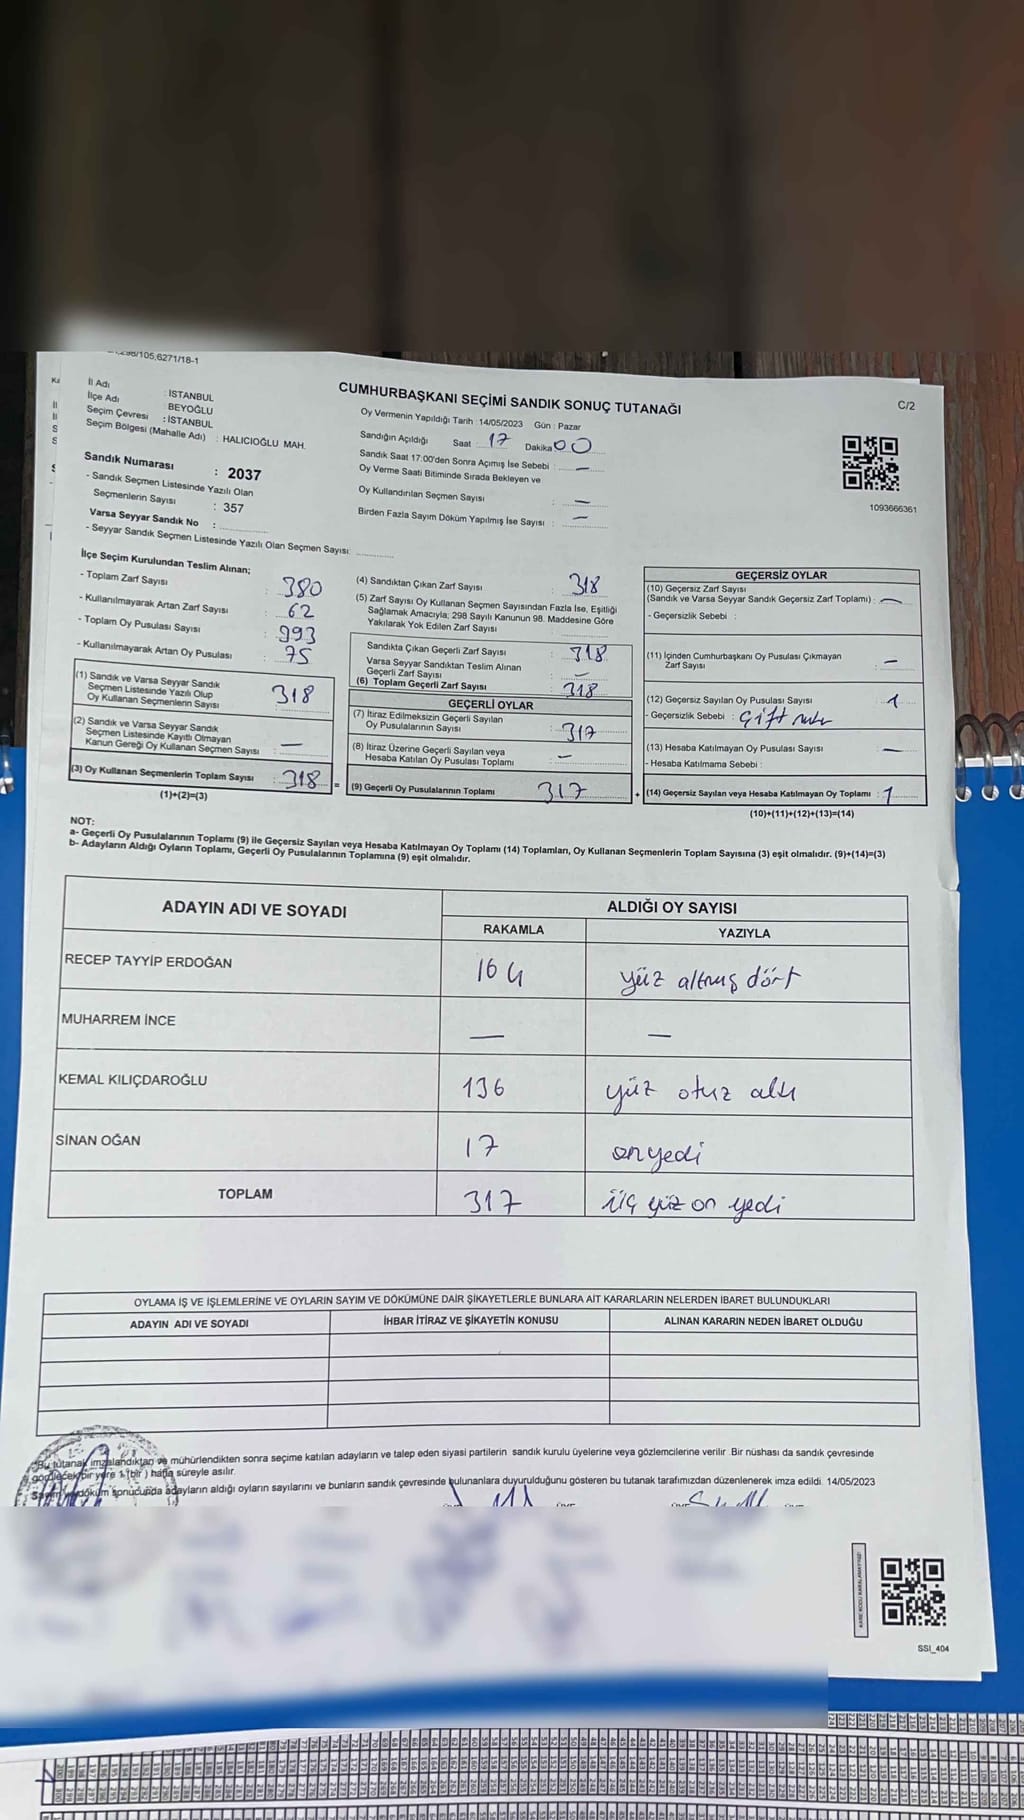 298/105,6271/18-1
C/2
CUMHURBAŞKANI SEÇİMİ SANDIK SONUÇ TUTANAĞI
İl Adı : İSTANBUL
İlçe Adı : BEYOĞLU
Seçim Çevresi : İSTANBUL
Seçim Bölgesi (Mahalle Adı) : HALICIOĞLU MAH.
Sandık Numarası : 2037
- Sandık Seçmen Listesinde Yazılı Olan
Seçmenlerin Sayısı : 357
Varsa Seyyar Sandık No :
- Seyyar Sandık Seçmen Listesinde Yazılı Olan Seçmen Sayısı:
Oy Vermenin Yapıldığı Tarih : 14/05/2023 Gün : Pazar
Sandığın Açıldığı Saat : 17 Dakika : 00
Sandık Saat 17:00'den Sonra Açımış İse Sebebi : —
Oy Verme Saati Bitiminde Sırada Bekleyen ve
Oy Kullandırılan Seçmen Sayısı : —
Birden Fazla Sayım Döküm Yapılmış İse Sayısı : —
1093666361
İlçe Seçim Kurulundan Teslim Alınan;
- Toplam Zarf Sayısı : 380
- Kullanılmayarak Artan Zarf Sayısı : 62
- Toplam Oy Pusulası Sayısı : 393
- Kullanılmayarak Artan Oy Pusulası : 75
(1) Sandık ve Varsa Seyyar Sandık
Seçmen Listesinde Yazılı Olup
Oy Kullanan Seçmenlerin Sayısı : 318
(2) Sandık ve Varsa Seyyar Sandık
Seçmen Listesinde Kayıtlı Olmayan
Kanun Gereği Oy Kullanan Seçmen Sayısı : —
(3) Oy Kullanan Seçmenlerin Toplam Sayısı : 318 =
(1)+(2)=(3)
(4) Sandıktan Çıkan Zarf Sayısı : 318
(5) Zarf Sayısı Oy Kullanan Seçmen Sayısından Fazla İse, Eşitliği
Sağlamak Amacıyla; 298 Sayılı Kanunun 98. Maddesine Göre
Yakılarak Yok Edilen Zarf Sayısı :
Sandıkta Çıkan Geçerli Zarf Sayısı : 318
Varsa Seyyar Sandıktan Teslim Alınan
Geçerli Zarf Sayısı : —
(6) Toplam Geçerli Zarf Sayısı : 318
GEÇERLİ OYLAR
(7) İtiraz Edilmeksizin Geçerli Sayılan
Oy Pusulalarının Sayısı : 317
(8) İtiraz Üzerine Geçerli Sayılan veya
Hesaba Katılan Oy Pusulası Toplamı : —
(9) Geçerli Oy Pusulalarının Toplamı : 317 +
GEÇERSİZ OYLAR
(10) Geçersiz Zarf Sayısı
(Sandık ve Varsa Seyyar Sandık Geçersiz Zarf Toplamı) : —
- Geçersizlik Sebebi :
(11) İçinden Cumhurbaşkanı Oy Pusulası Çıkmayan
Zarf Sayısı : —
(12) Geçersiz Sayılan Oy Pusulası Sayısı : 1
- Geçersizlik Sebebi : Çift
(13) Hesaba Katılmayan Oy Pusulası Sayısı : —
- Hesaba Katılmama Sebebi :
(14) Geçersiz Sayılan veya Hesaba Katılmayan Oy Toplamı : 1
(10)+(11)+(12)+(13)=(14)
NOT:
a- Geçerli Oy Pusulalarının Toplamı (9) ile Geçersiz Sayılan veya Hesaba Katılmayan Oy Toplamı (14) Toplamları, Oy Kullanan Seçmenlerin Toplam Sayısına (3) eşit olmalıdır. (9)+(14)=(3)
b- Adayların Aldığı Oyların Toplamı, Geçerli Oy Pusulalarının Toplamına (9) eşit olmalıdır.
ADAYIN ADI VE SOYADI ALDIĞI OY SAYISI
RAKAMLA YAZIYLA
RECEP TAYYİP ERDOĞAN 164 yüz altmış dört
MUHARREM İNCE — —
KEMAL KILIÇDAROĞLU 136 yüz otuz altı
SİNAN OĞAN 17 on yedi
TOPLAM 317 üç yüz on yedi
OYLAMA İŞ VE İŞLEMLERİNE VE OYLARIN SAYIM VE DÖKÜMÜNE DAİR ŞİKAYETLERLE BUNLARA AİT KARARLARIN NELERDEN İBARET BULUNDUKLARI
ADAYIN ADI VE SOYADI İHBAR İTİRAZ VE ŞİKAYETİN KONUSU ALINAN KARARIN NEDEN İBARET OLDUĞU
Bu tutanak imzalandıktan ve mühürlendikten sonra seçime katılan adayların ve talep eden siyasi partilerin sandık kurulu üyelerine veya gözlemcilerine verilir. Bir nüshası da sandık çevresinde
görülecek bir yere 1 (bir) hafta süreyle asılır.
Sayım ve döküm sonucunda adayların aldığı oyların sayılarını ve bunların sandık çevresinde bulunanlara duyurulduğunu gösteren bu tutanak tarafımızdan düzenlenerek imza edildi. 14/05/2023
SSI_404